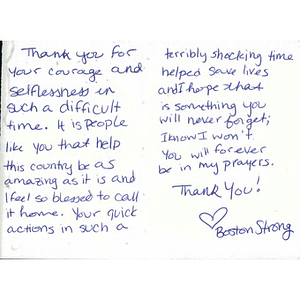 Thank you for
your courage and
selflessness in
such a difficult
time. It is people
like you that help
this country be as
amazing as it is and
I feel so blessed to call
it home. Your quick
actions in such a
terribly shocking time
helped save lives
and I hope that
is something you
will never forget;
I know I won't.
You will forever
be in my prayers.
Thank You!
Boston Strong